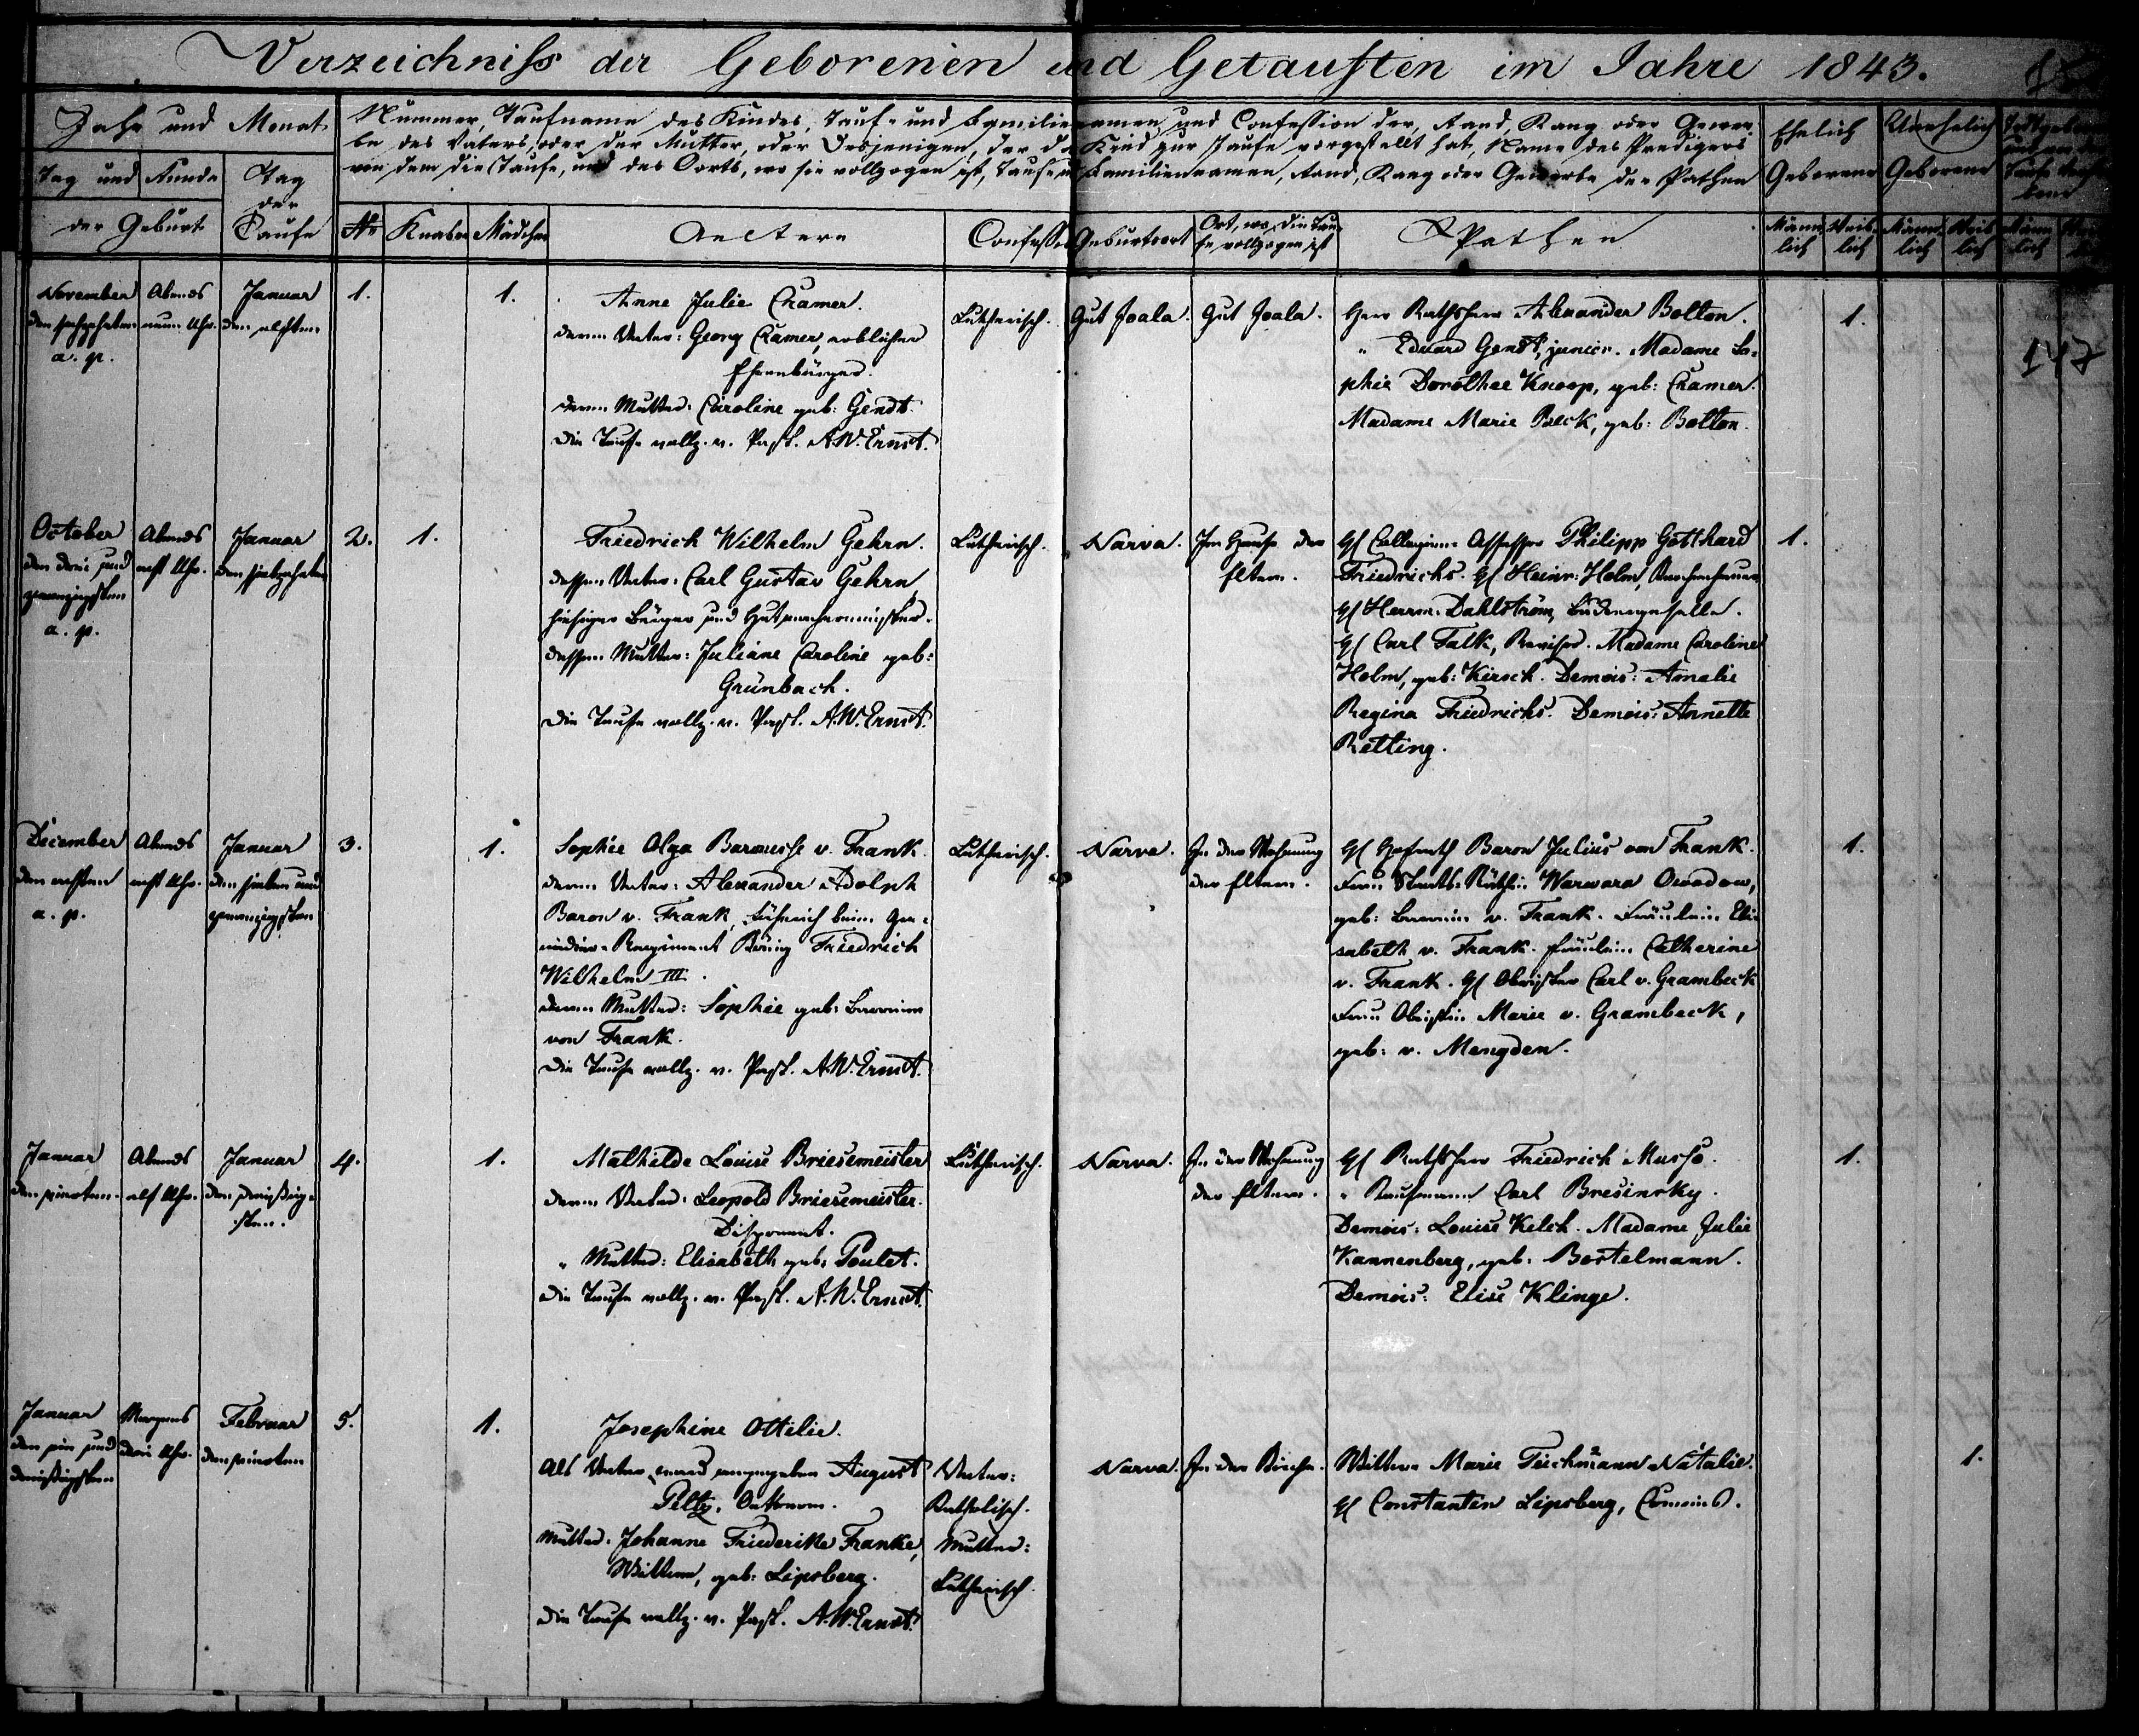 Verzeichniss der Geborenen und Getauften im Jahre 1843.
147
Jahr und Monat
Tag und Stunde
der Geburt
Tag
der
Taufe
Nummer, Taufname des Kindes, Tauf- und Familiennamen und Confession der, Stand, Rang oder Gewer-
be des Vaters, oder der Mutter, oder Desjenigen, der das Kind zur Taufe vorgestellt hat, Name des Predigers
von dem die Taufe, und des Oorts, wo sie vollzogen ist, Tauf- u Familiennamen, Stand, Rang oder Gewerbe der Pathen
Ehelich
Geborene
Unehelich
Geborene
No Knaben Mädchen
Aeltern
Confession
Geburtsort
Ort, wo die Tau-
fe vollzogen ist
Pathen
Männ-
lich
Weib-
lich
Männ-
lich
Weib-
lich
November
den sechszehnten
a. p.
Abends
neun Uhr.
Januar
den achten
1.
1.
Anne Julie Cramer.
deren Vater: Georg Cramer, erblicher
Ehrenbürger.
deren Mutter: Caroline geb: Gendt.
die Taufe vollz. v. Past. A.W. Ernst.
Lutherisch.
Gut Joala.
Gut Joala.
Herr Rathsherr Alexander Bolton.
" Eduard Gendt, junior. Madame So-
phie Dorothee Knoop, geb: Cramer.
Madame Marie Baeck, geb: Bolton.
1.
October
den drei und
zwanzigsten
a. p.
Abends
acht Uhr.
Januar
den siebzehnten
2.
1.
Friedrich Wilhelm Gehrn.
dessen Vater: Carl Gustav Gehrn,
hiesiger Bürger und Hutmachermeister.
dessen Mutter: Juliane Caroline geb:
Grünbach.
die Taufe vollz. v. Past. A.W. Ernst.
Lutherisch.
Narva.
Im Hause der
Eltern.
H/ Collegien-Assessor Philipp Gotthard
Friedrichs. H/ Heinr: Holm,
H/ Herrm: Dahlström,
H/ Carl Falk, Revisor. Madame Caroline
Holm, geb: Kirsch. Demois: Amalie
Regina Friedrichs. Demois: Annette
Retting.
1.
December
den achten
a. p.
Abends
acht Uhr.
Januar
den sieben und
zwanzigsten
3.
1.
Sophie Olga Baronesse v. Frank.
deren Vater: Alexander Adolph
Baron v. Frank, Fähnrich beim Gre-
nadier-Regiment König Friedrich
Wilhelm III.
deren Mutter: Sophie geb: Baronin
von Frank.
die Taufe vollz. v. Past. A.W. Ernst.
Lutherisch.
Narva.
In der Wohnung
der Eltern.
H/ Hofrath Baron Julius von Frank.
Frau Staats-Räthin Warwara Owodow,
geb: Baronin v. Frank. Fräulein Eli-
sabeth v. Frank. Fräulein Catherine
v. Frank. H/ Obrister Carl v. Grambeck
Frau Obristin Marie v. Grambeck,
geb: v. Mengden.
1.
Januar
den einoten.
Abends
elf Uhr.
Januar
den dreißig-
sten.
4.
1.
Mathilde Louise Briesemeister
deren Vater: Leopold Briesemeister.
Disponent.
" Mutter: Elisabeth geb: Poulet.
die Taufe vollz. v. Past. A.W. Ernst.
Lutherisch.
Narva.
In der Wohnung
der Eltern.
H/ Rathsherr Friedrich Musso.
" Kaufmann Carl Bresinsky.
Demois: Louise Kelch. Madame Julie
Kannenberg, geb: Bostelmann.
Demois: Elise Klinge.
1.
Januar
den ein und
dreißigsten
Morgens
drei Uhr.
Februar
den einoten
5.
1.
Josephine Ottilie.
Als Vater ward angegeben August
Peltz, Oekonom.
Mutter: Johanne Friederike Franke,
Wittwe, geb: Lipsberg.
die Taufe vollz. v. Past. A.W. Ernst.
Vater:
Katholisch.
Mutter:
Lutherisch.
Narva.
In der Kirche.
Wittwe Marie Teichmann Natalie.
H/ Constantin Lipsberg, Commis.
1.